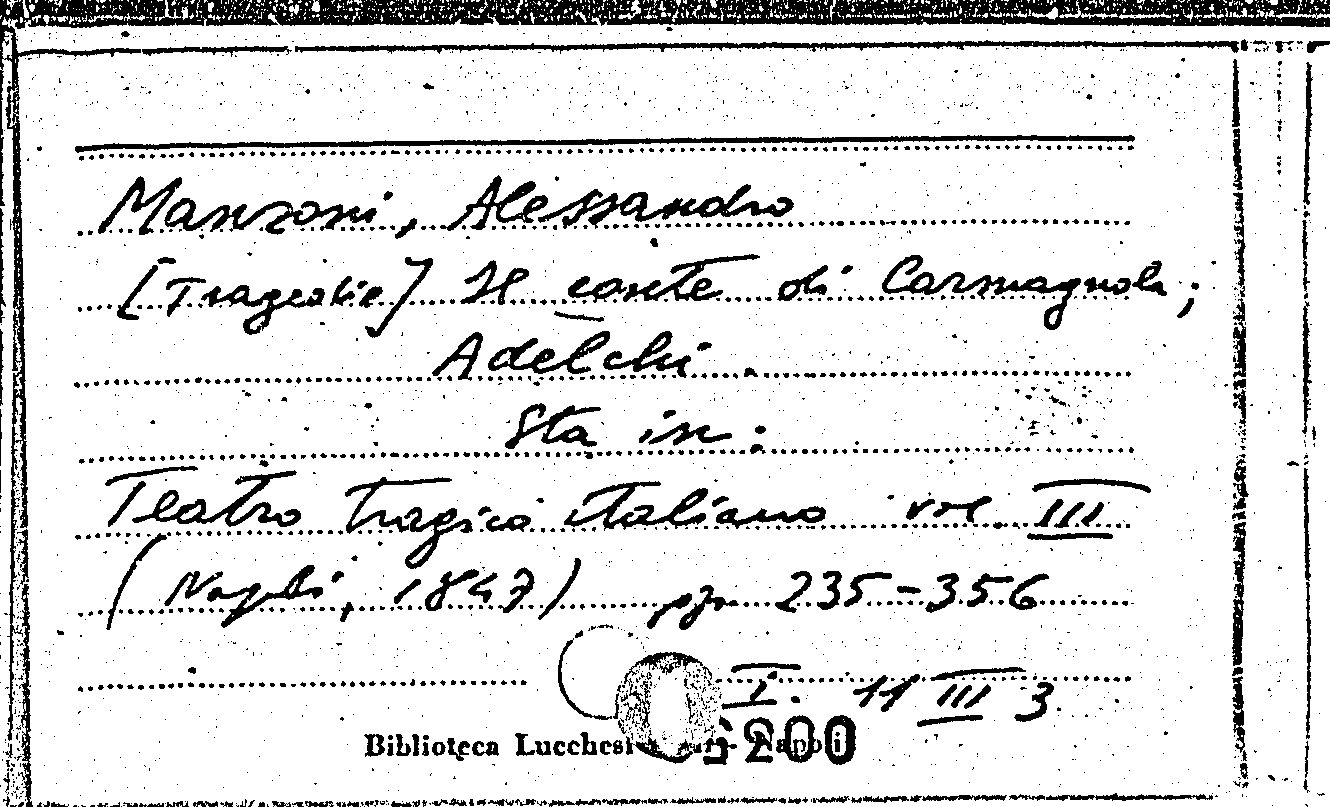 Manzoni, Alessandro
[Tragedie] Il conte di Carmagnola;
Adelchi.
Sta in:
Teatro tragico italiano vol. III
(Napoli, 1847) pp. 235-356
I. 11 III 3
Biblioteca Napoli
200